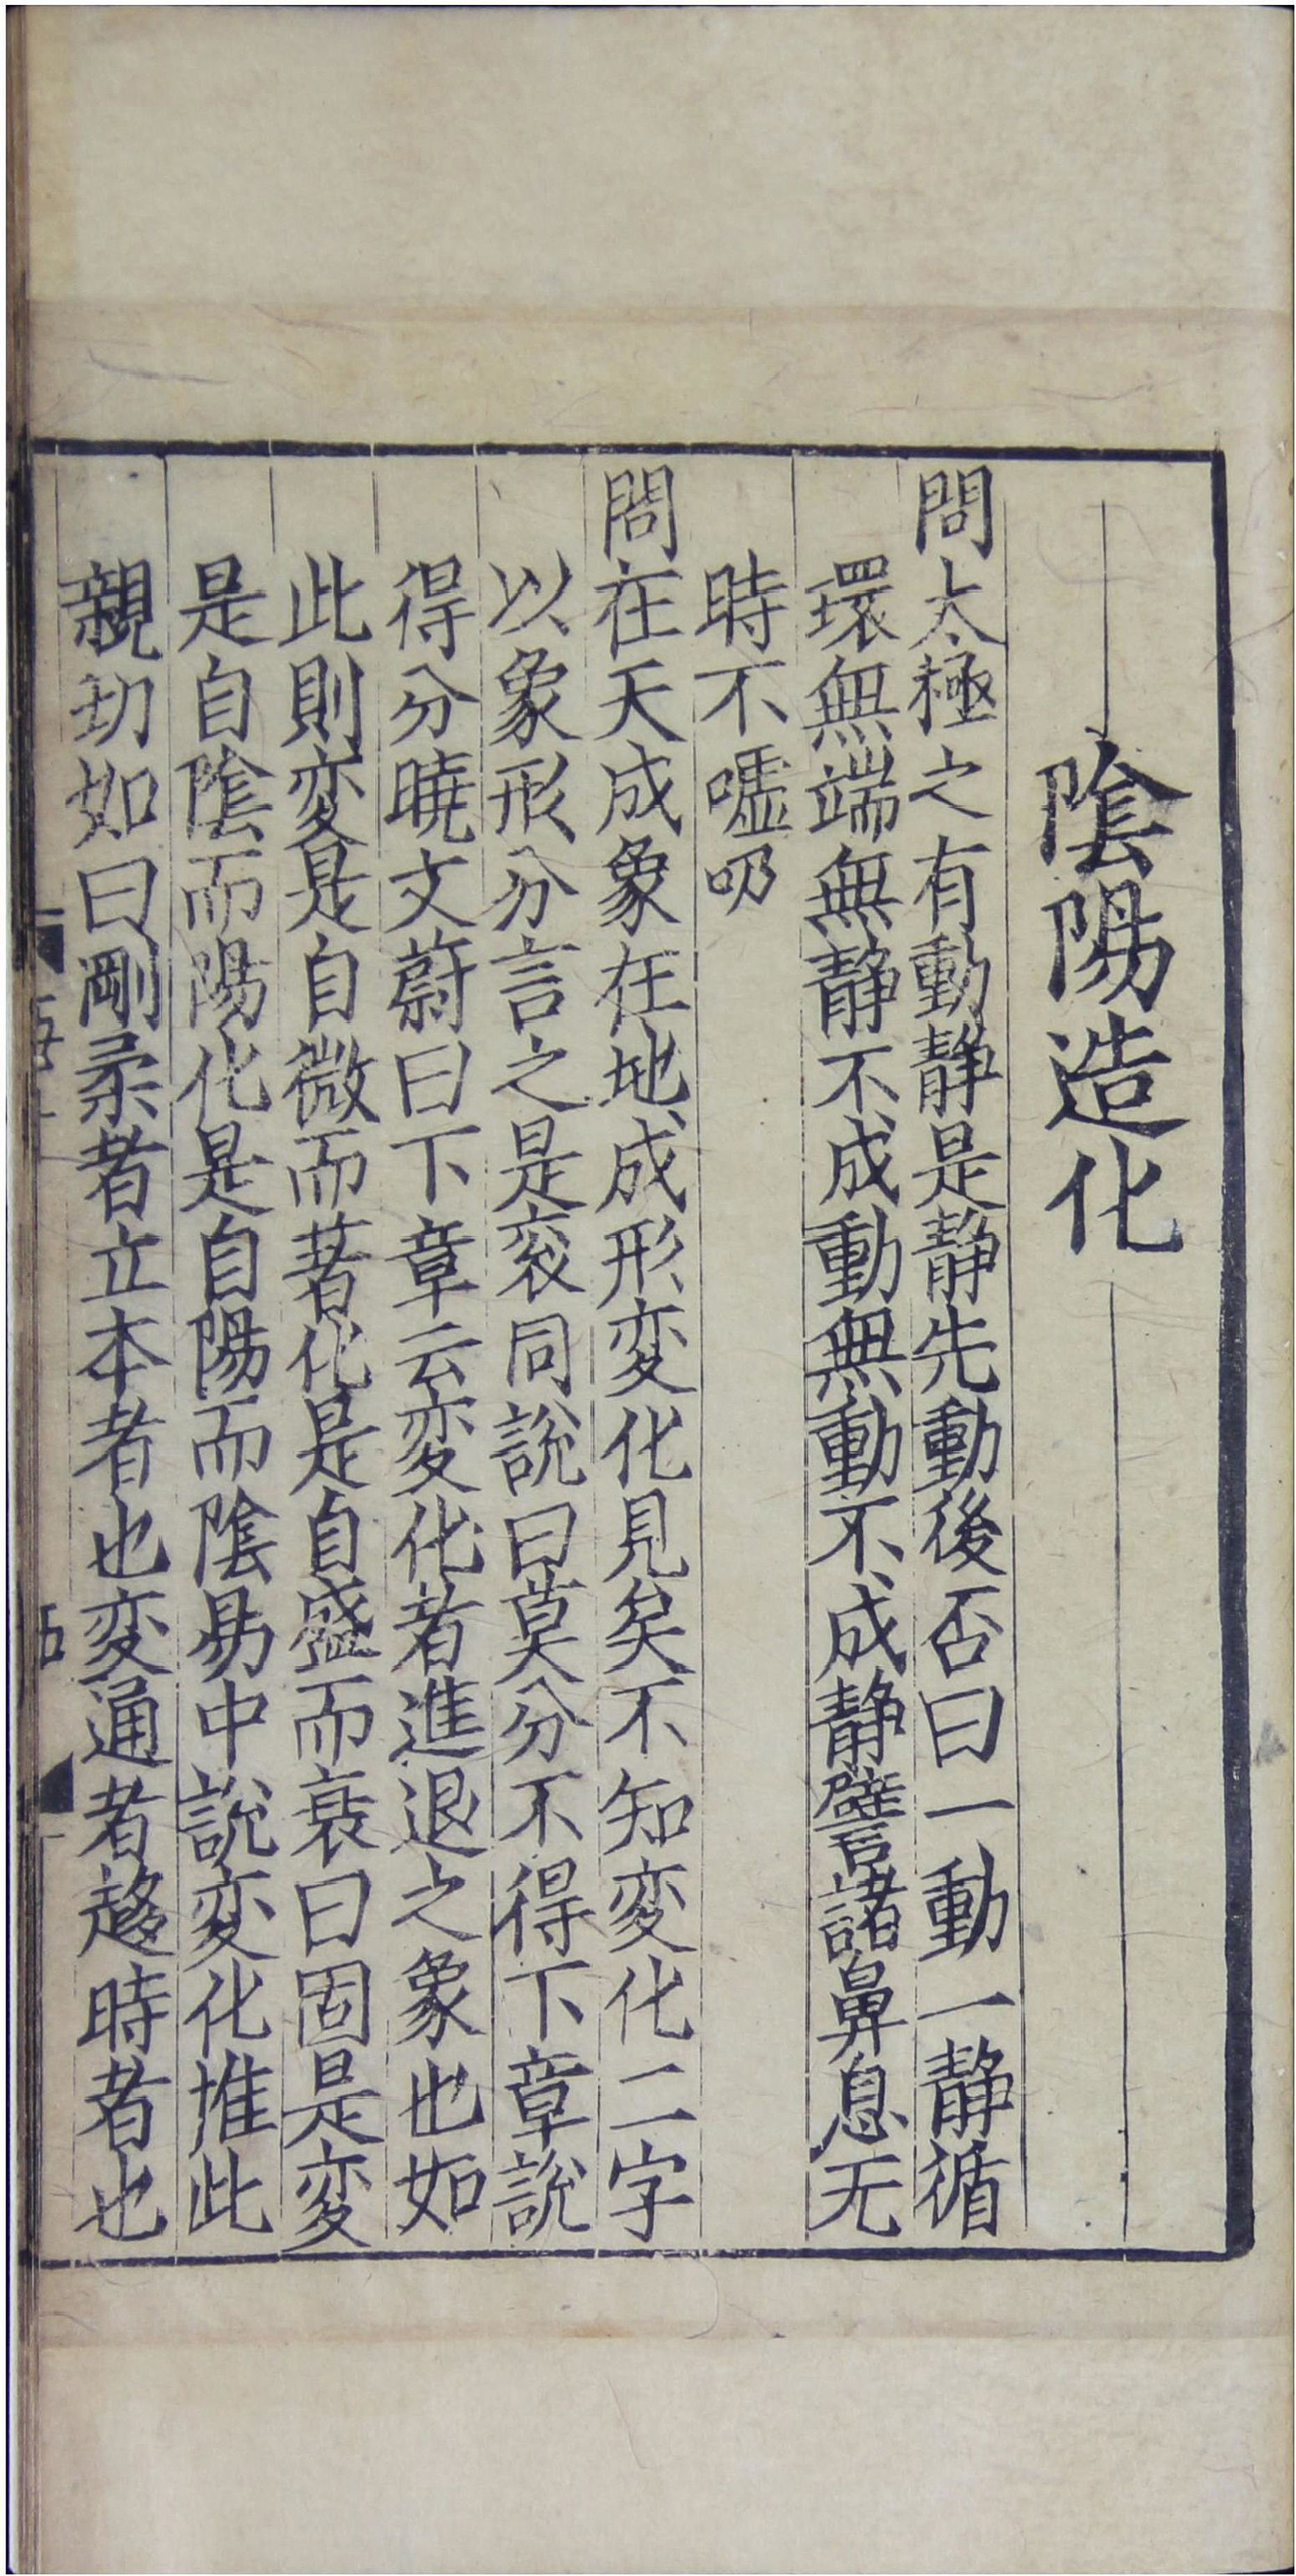 陰陽造化
問太極之有動静是静先動後否曰一動一静循
環無端無静不成動無動不成静譬諸鼻息无
時不嘘吸
問在天成象在地成形変化見矣不知変化二字
以象形分言之是衮同說曰莫分不得下章說
得分曉文蔚曰下章云変化者進退之象也如
此則変是自微而著化是自盛而衰曰固是変
是自陰而陽化是自陽而陰易中說変化惟此
親切如曰剛柔者立本者也変通者趍時者也